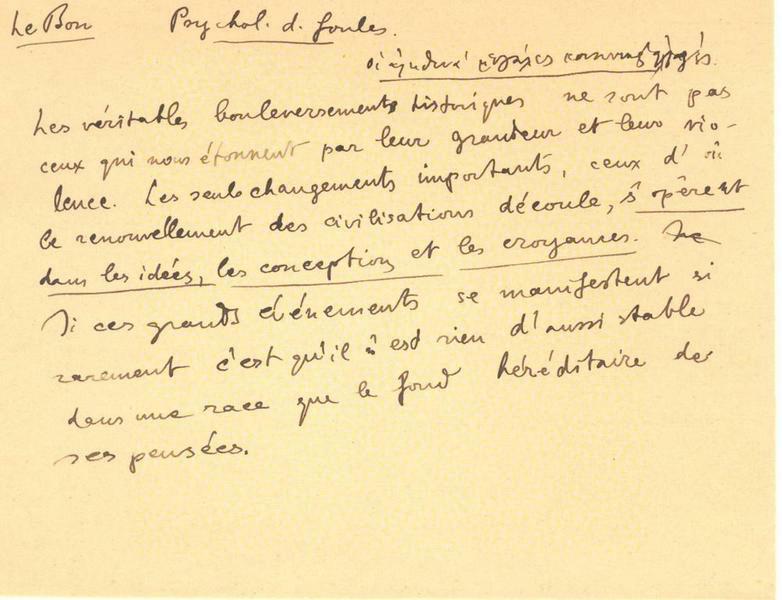 Le Bon Psychol. d. foules.
οἱ ἀληθινὲς μεγάλες κοινων. ἀλλαγές.
Les véritables bouleversements historiques ne sont pas
ceux qui nous étonnent par leur grandeur et leur vio-
lence. Les seuls changements importants, ceux d'où
le renouvellement des civilisations découle, s'opèrent
dans les idées, les conceptions et les croyances.
Si ces grands événements se manifestent si
rarement c'est qu'il n'est rien d'aussi stable
dans une race que le fond héréditaire de
ses pensées.